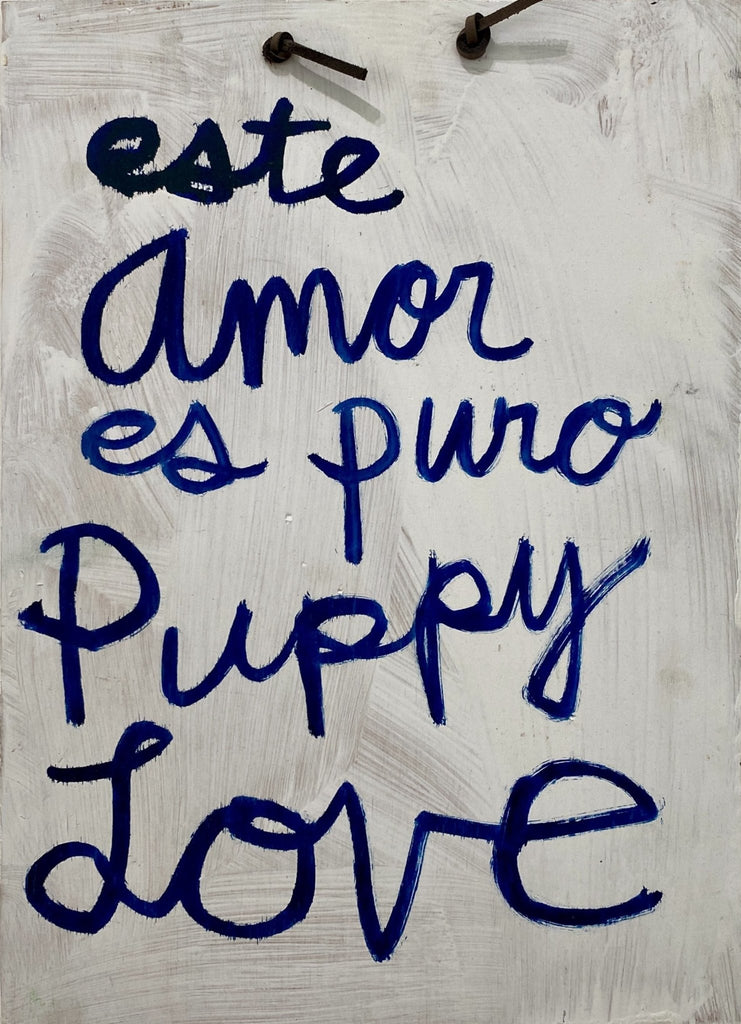 este
Amor
es puro
Puppy
Love